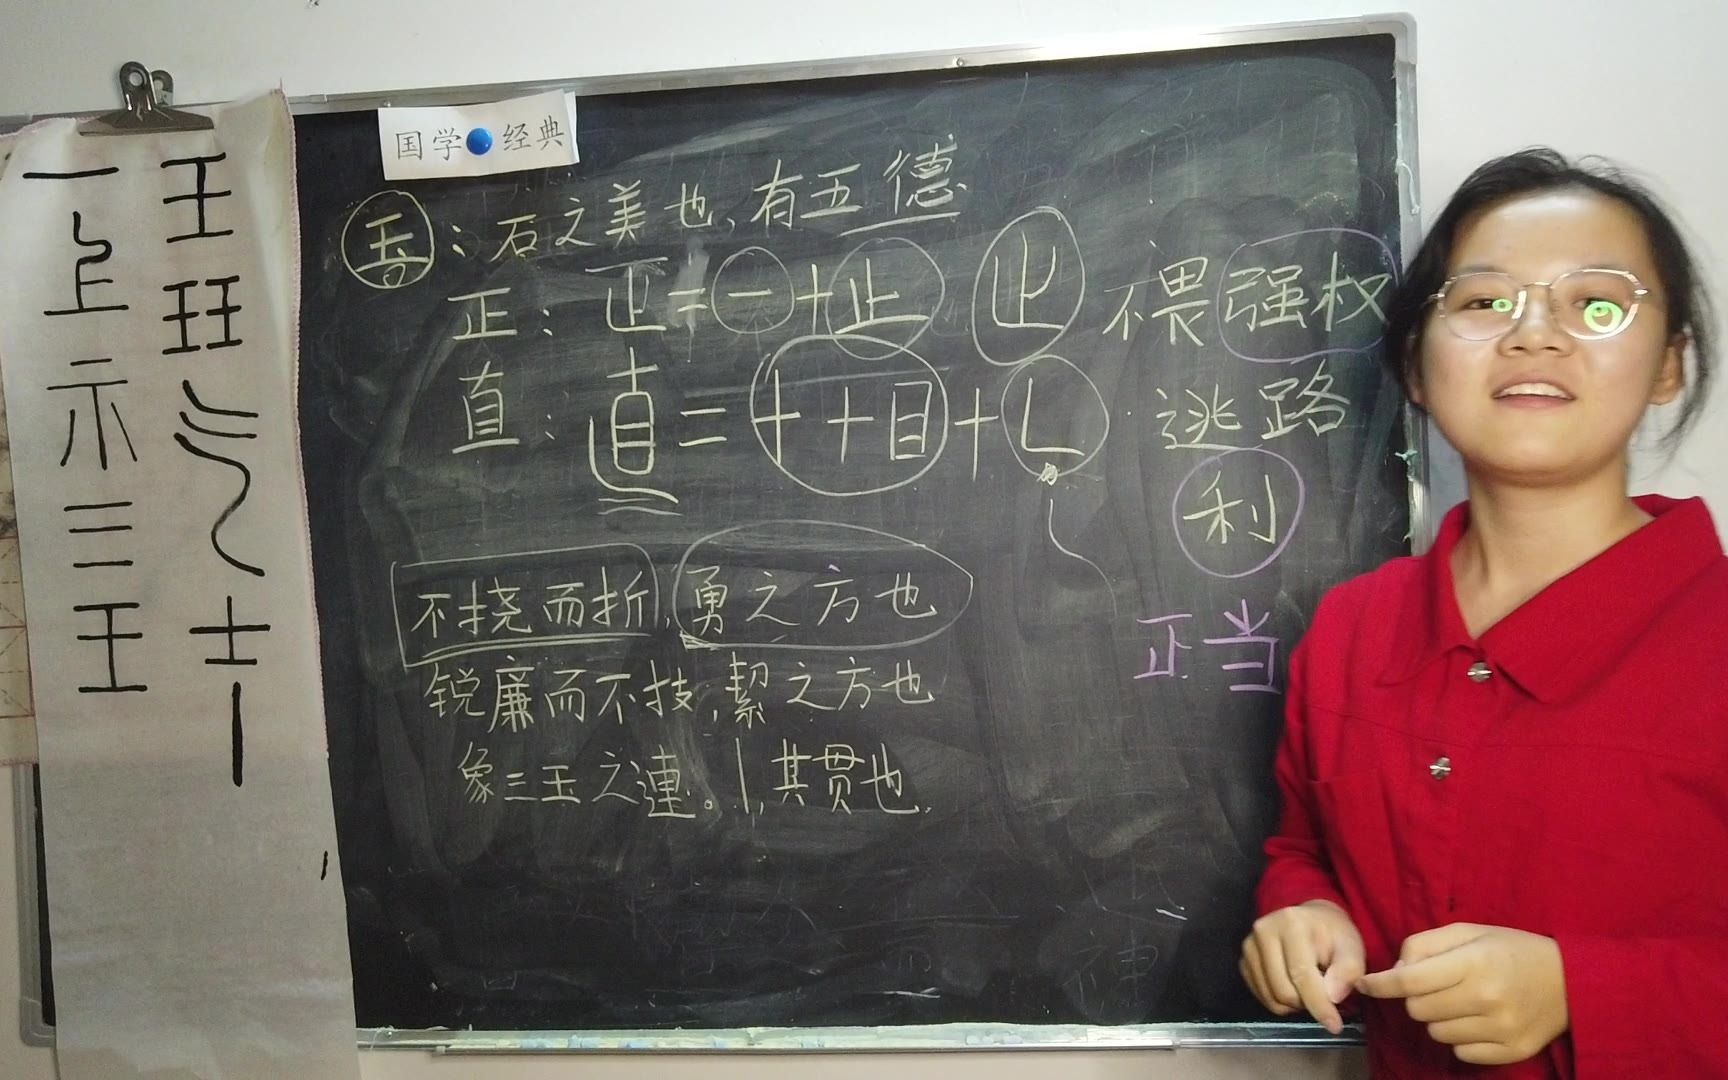 国学 经典
玉：石之美也、有五德
正：正=一+止 止 不畏强权
直：直=十+目+乚 逃路
利
不挠而折，勇之方也
正当
锐廉而不技，絜之方也
象三玉之連。丨，其贯也
王
玨
士
丨
一
示
三
王